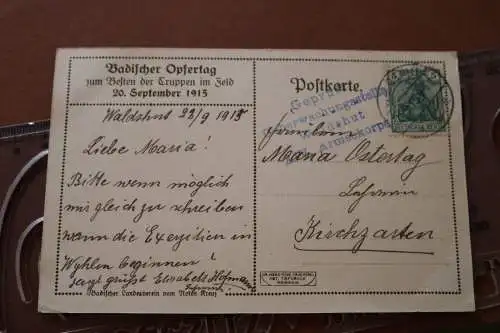 Badischer Opfertag
zum Besten der Truppen im Feld
20. September 1915
Waldshut 22/9 1915
Liebe Maria!
Bitte wenn möglich
mir gleich zu schreiben
wann die Exerzitien in
Wyhlen beginnen!
sagt grüßt Elisabeth Hofmann
Badischer Landesverein vom Roten Kreuz
Postkarte.
Geprüft
Überwachungsstelle
Waldshut
Armeekorps
Fräulein
Maria Ostertag
Lehrerin
Kirchzarten